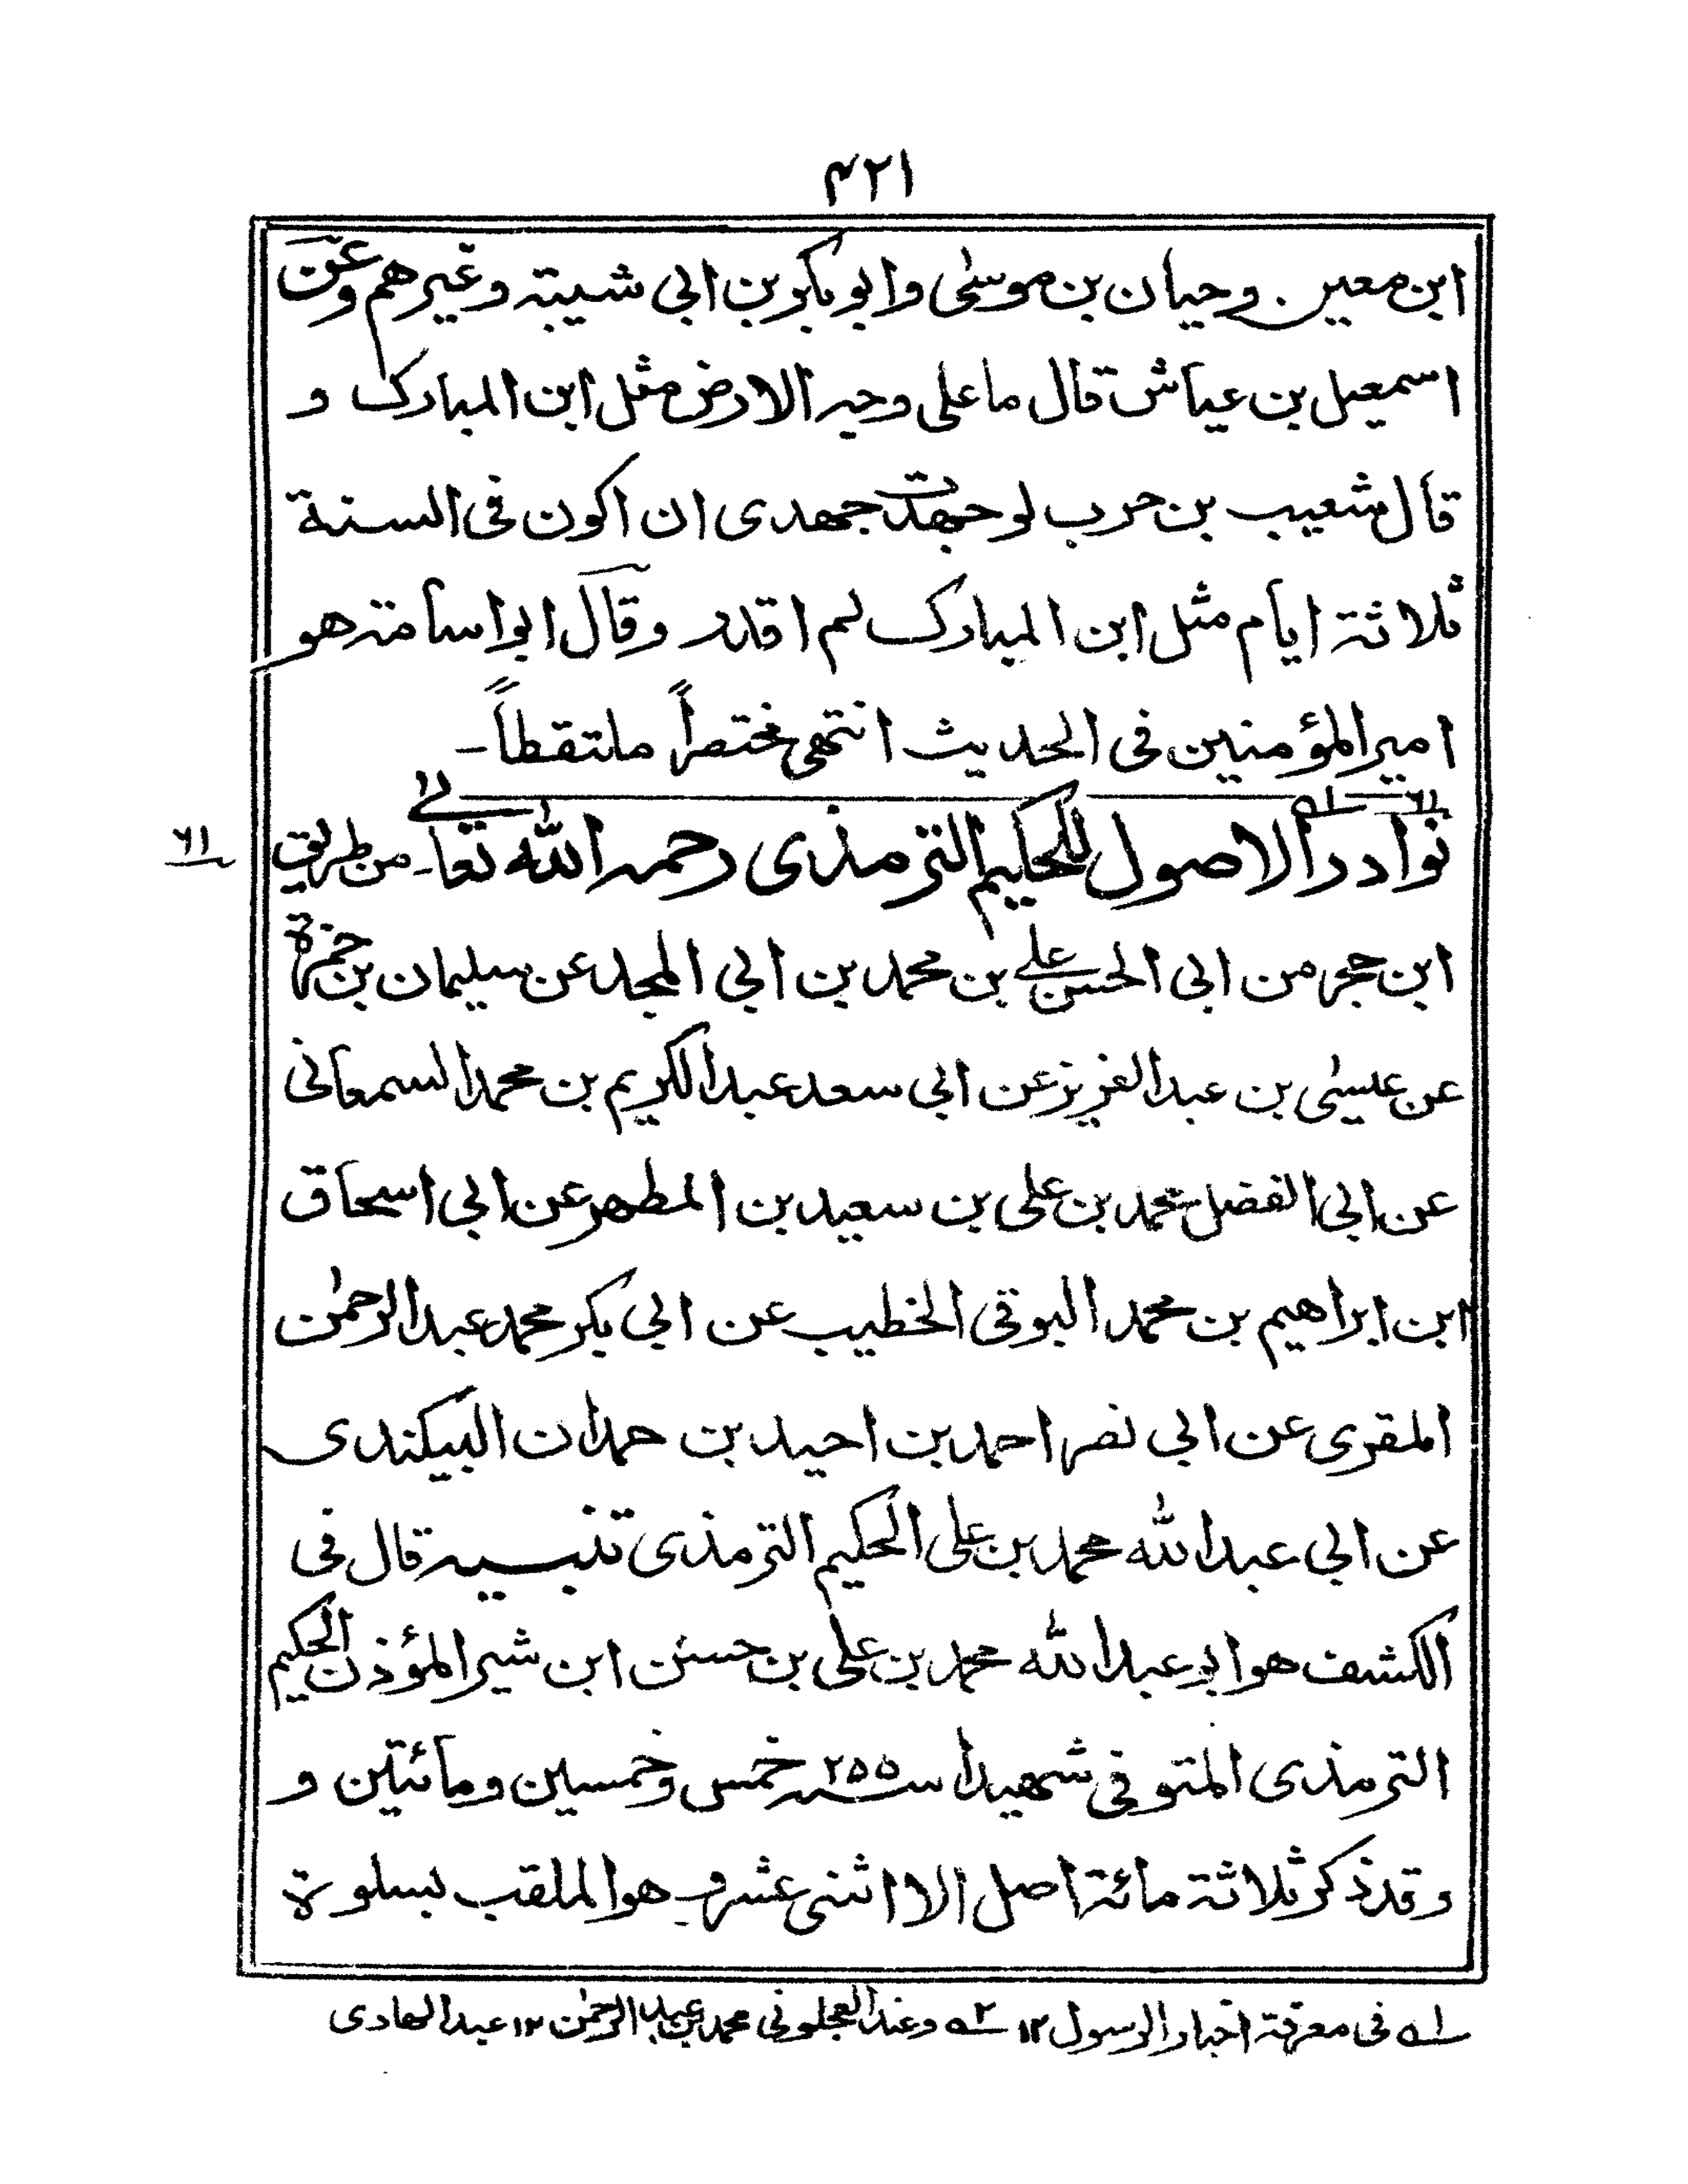 ۴۲۱
ابن معين. وحيان بن موسىٰ وابو بكر بن ابي شيبة وغيرهم وعن
اسمعيل بن عياش قال ما على وجه الارض مثل ابن المبارك و
قال شعيب بن حرب لو جهدت جهدى ان اكون فى السنة
ثلاثة ايام مثل ابن المبارك لم اقدر وقال ابو اسامة هو
امير المؤمنين فى الحديث انتهى مختصراً ملتقطاً-
نوادر الاصول للحكيم الترمذى رحمه الله تعالى من طريق
۶۱
ابن حجر من ابي الحسن على بن محمد بن ابي المجد عن سليمان بن حمزة
عن عيسىٰ بن عبد العزيز عن ابي سعد عبد الكريم بن محمد السمعانى
عن ابي الفضل محمد بن على بن سعيد بن المطهر عن ابي اسحاق
ابن ابراهيم بن محمد البوقى الخطيب عن ابي بكر محمد عبد الرحمٰن
المقرى عن ابي نصر احمد بن احيد بن حمدان البيكندى
عن ابي عبد الله محمد بن على الحكيم الترمذى تنبيه قال فى
الكشف هو ابو عبد الله محمد بن على بن حسن ابن شير المؤذن الحكيم
الترمذى المتوفى شهيدا سنة ۲۵۵ خمس وخمسين ومائتين و
وقد ذكر ثلاثة مائة اصل الا اثنى عشر و هو الملقب بسلوة
له فى معرفة اخبار الرسول ۱۲ ۲ه وعند العجلونى محمد بن عبد الرحمٰن ۱۲ عبد الهادى